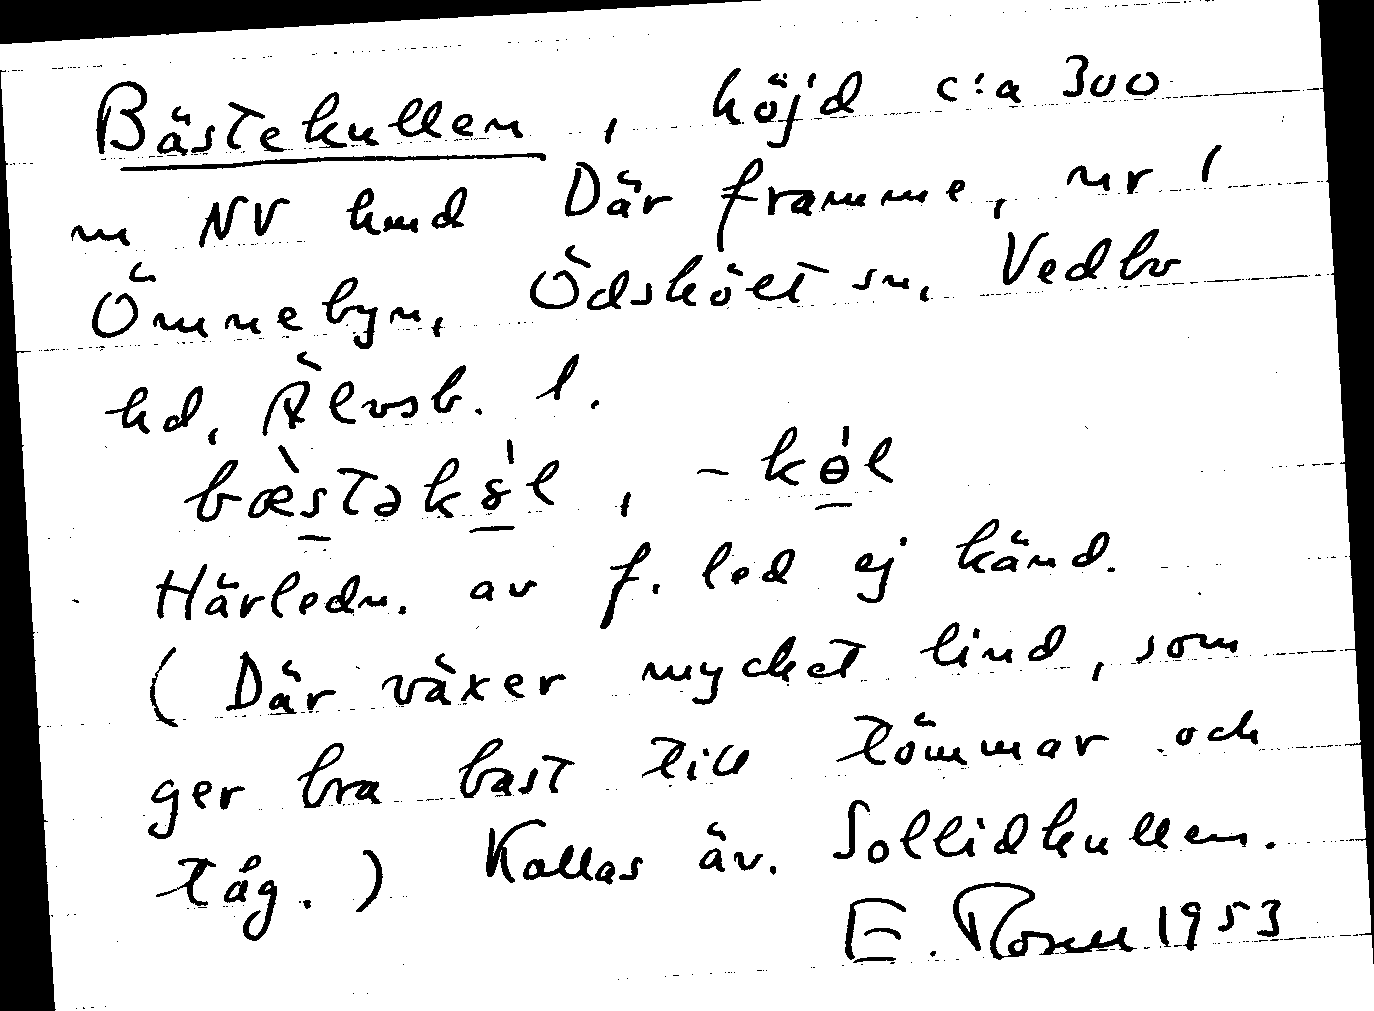 Bästekullen, höjd c:a 300
m NV hmd Där framme, nr 1
Ömmebyn, Ödskölt sn, Vedbo
hd, Älvsb. l.
bæ̀stəkȣ́l, -kɵ́l
Härledn. av f. led ej känd.
(Där växer mycket lind, som
ger bra bast till tömmar och
tåg.) Kallas äv. Sollidkullen.
E. Rosell 1953